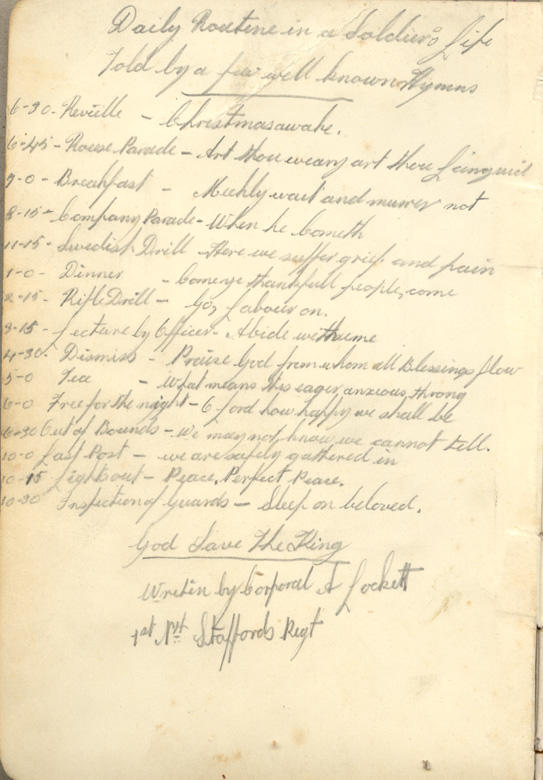 Daily Routine in a Soldiers Life
Told by a few well known Hymns
6-30- Reveille - Christmas awake.
6-45- Rouse Parade - Art thou weary art thou Languid
9-0- Breakfast - Meekly wait and murmer not
8-15- Company Parade - When he Cometh
11-15- Swedish Drill - Here we suffer grief and pain
1-0- Dinner - Come ye thankfull people, come
2-15- Rifle Drill - Go, Labour on.
3-15- Lecture by Officer - Abide with me
4-30- Dismiss - Praise God from whom all Blessings flow
5-0 Tea - What means this eager, anxious, throng
6-0 Free for the night - O Lord how happy we shall be
6-30 Out of Bounds - We may not know, we cannot tell.
10-0 Last Post - we are safely gathered in
10-15 Lights out - Peace, Perfect Peace.
10-30 Inspection of Guards - Sleep on beloved.
God Save The King
Writen by Corporal A Lockett
1st Nth Staffords Regt